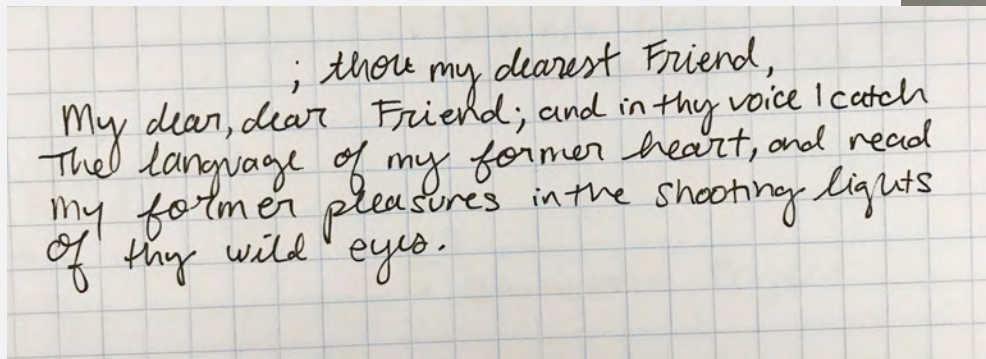 ; thou my dearest Friend,
My dear, dear Friend; and in thy voice I catch
The language of my former heart, and read
my former pleasures in the shooting lights
of thy wild eyes.